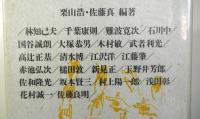 栗山浩・佐藤真 編著
／林知己夫／千葉康則／難波寛次／石川中
国谷誠朗／大塚恭男／木村敏／武者利光
高辻正基／清水博／江沢洋／江藤肇
赤池弘次／樋田敦／新見正／玉野井芳郎
佐和隆光／坂本賢三／村上陽一郎／浅田彰
花村誠一／佐藤良明